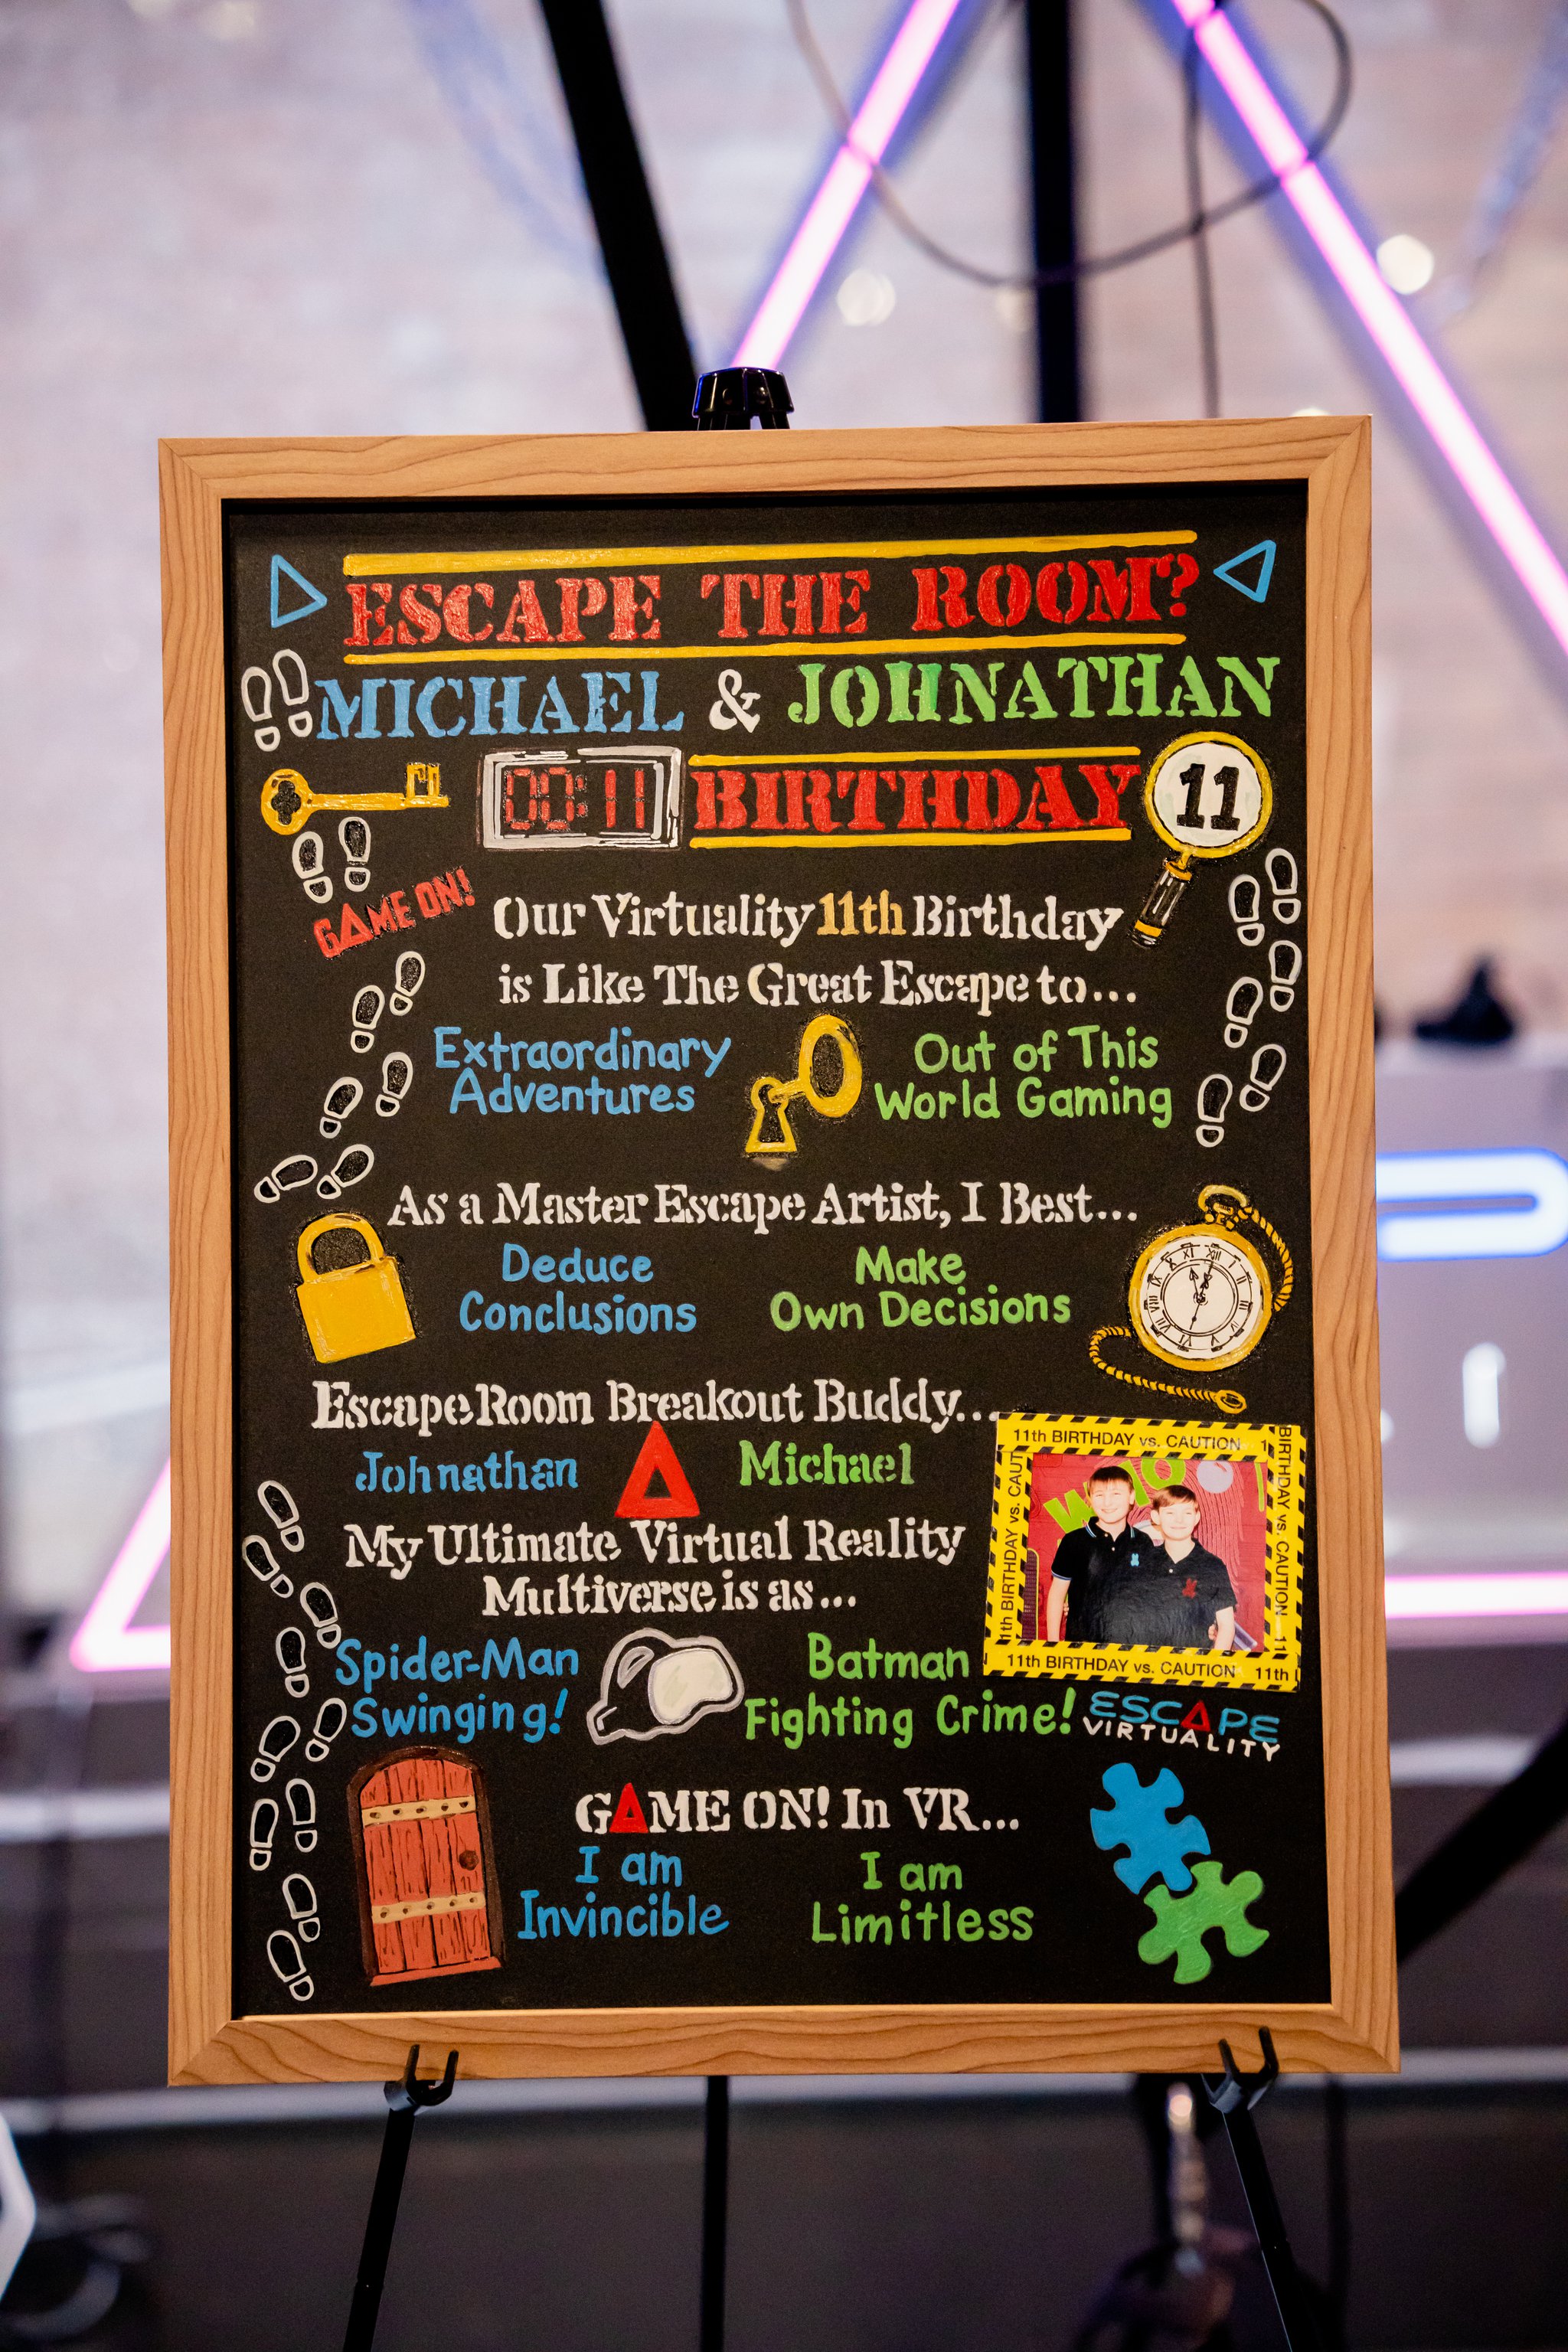 ESCAPE THE ROOM?
MICHAEL & JOHNATHAN
00:11 BIRTHDAY 11
GAME ON!
Our Virtuality 11th Birthday
is Like The Great Escape to...
Extraordinary
Adventures
Out of This
World Gaming
As a Master Escape Artist, I Best...
Deduce
Conclusions
Make
Own Decisions
Escape Room Breakout Buddy...
Johnathan
Michael
11th BIRTHDAY vs. CAUTION 1
11th BIRTHDAY vs. CAUT
BIRTHDAY vs. CAUTION 11
11th BIRTHDAY vs. CAUTION 11th
My Ultimate Virtual Reality
Multiverse is as...
Spider-Man
Swinging!
Batman
Fighting Crime!
ESCAPE
VIRTUALITY
GAME ON! In VR...
I am
Invincible
I am
Limitless